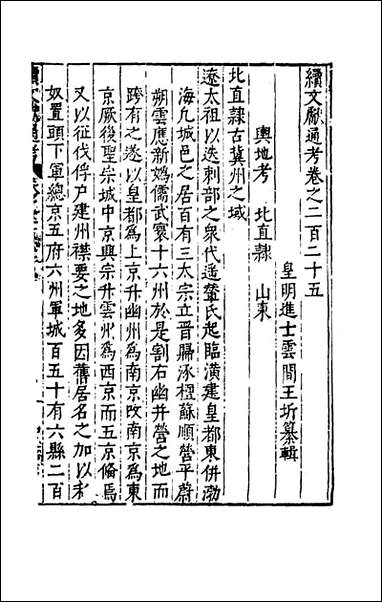 續文獻通考卷之二百二十五
皇明進士雲間王圻纂輯
輿地考 北直隸 山東
北直隸古冀州之域
遼太祖以迭剌部之衆代遥輦氏起臨潢建皇都東併渤
海九城邑之居百有三太宗立晋賜涿檀薊順營平蔚
朔雲應新媯儒武寰十六州於是割古幽并營之地而
跨有之遂以皇都爲上京升幽州爲南京改南京爲東
京厥後聖宗城中京興宗升雲州爲西京而五京備焉
又以征伐俘户建州襟要之地多因舊居名之加以私
奴置頭下軍總京五府六州軍城百五十有六縣二百